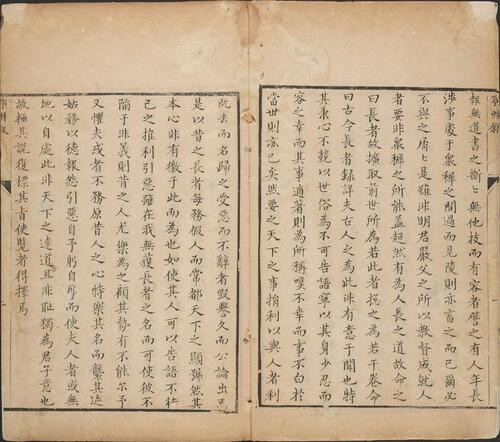 報無道書之斷斷無他技而有容者譬之有人年長
涉事處于衆稺之間過而見陵則亦畜之而已爾必
不與之脣脣是雖非明君嚴父之所以教督成就人
者要非衆稺之所能盖超然有為人長之道故命之
曰長者故攟取前世所為若此者摠之為若干卷命
曰古今長者録詳夫古人之為此非有意于聞也特
其秉心不競以世俗為不可告語寧以其身少忍而
容之幸而其事適著則為所稱嘆不幸而事不白於
當世則亦已矣然要之天下之事揹利以與人者利
既去而名歸之受惡而不辭者毀譽久而公論出焉
是以昔之長者每務假人而常都天下之顯號然其
本心非有徼于此而為也如使其人可以告語不待
己之推利引惡雖在我無獲長者之名而可使彼不
陷于非義則昔之人尤樂為之顧其勢有不能尔予
又懼夫或者不務原昔人之心特樂其名而襲其迹
姑務以德報怨引惡自予躬自厚而使夫人者或無
地以自處此非天下之達道且非耻獨為君子意也
故極其說復標其旨使覽者得擇焉